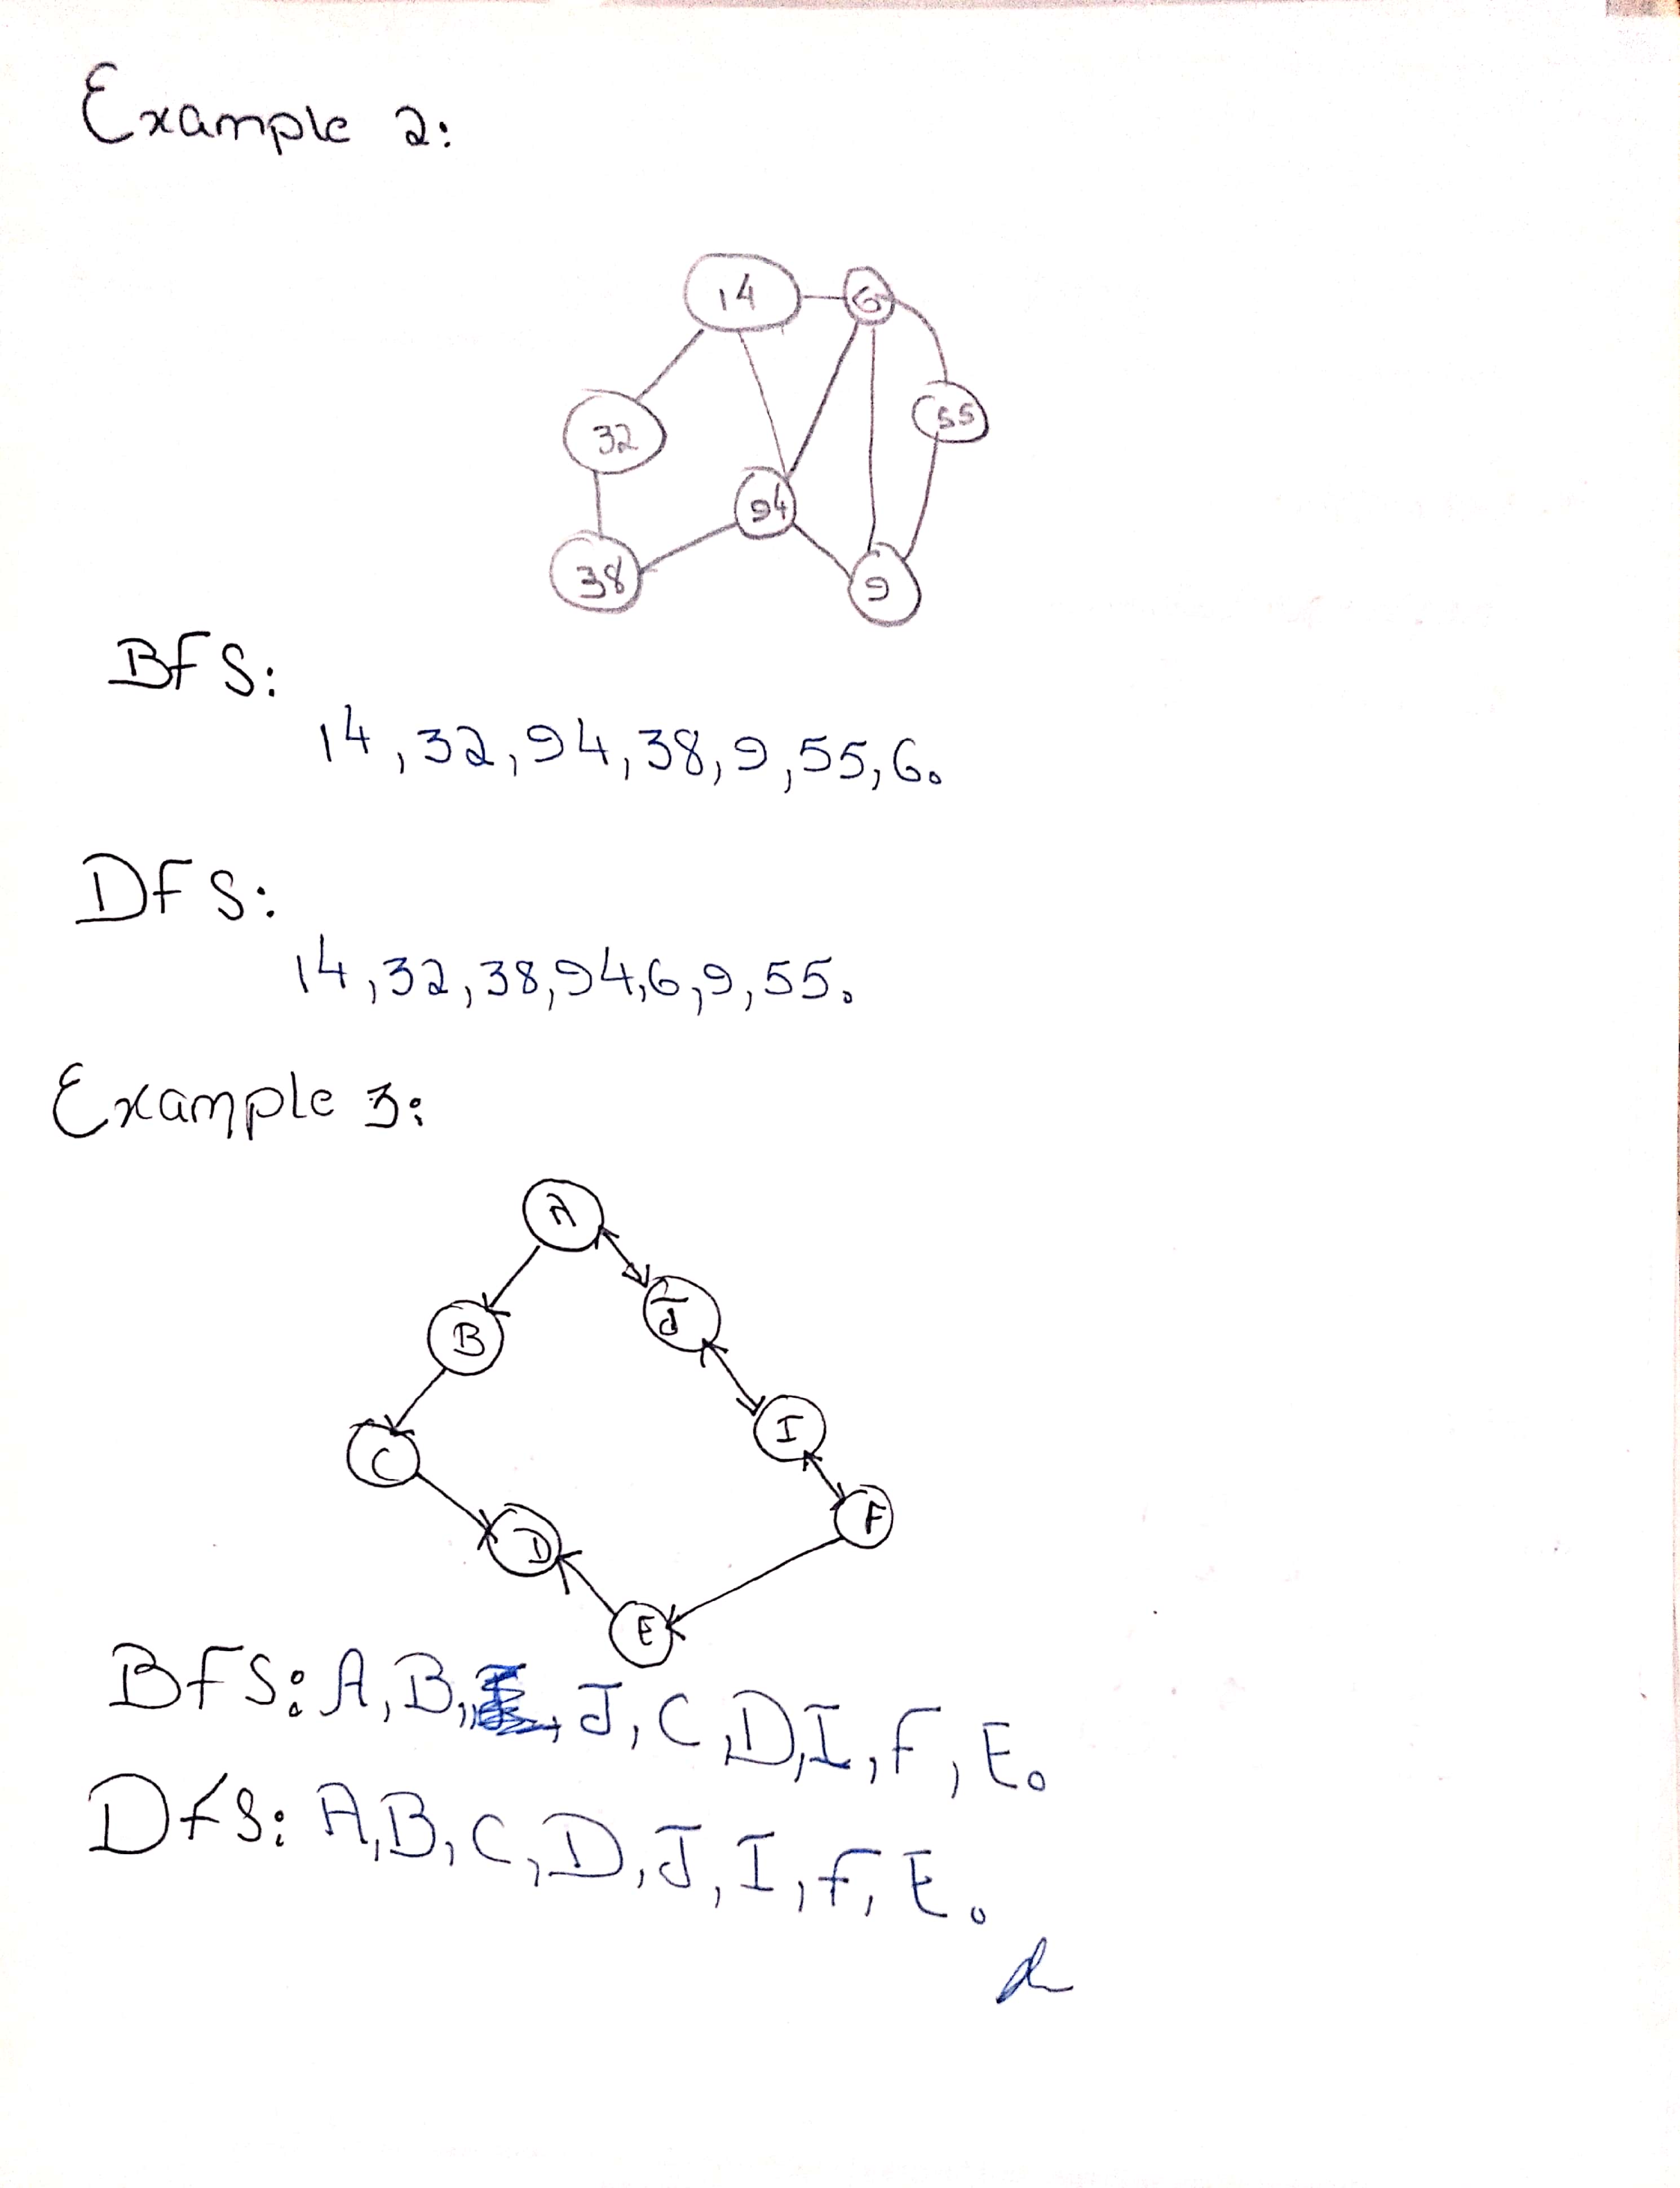 Example 2:
14 6
55
32
94
38 9
BFS:
14, 32, 94, 38, 9, 55, 6.
DFS:
14, 32, 38, 94, 6, 9, 55.
Example 3:
A
J
B
I
C
F
D
E
BFS: A, B, , J, C, D, I, F, E.
DFS: A, B, C, D, J, I, F, E.